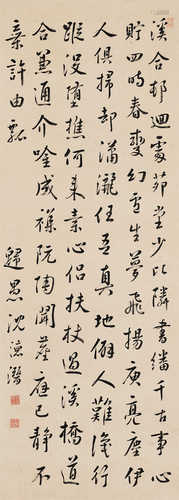 溪合邨迴處茆堂少比隣書繙千古事心
貯四時春變幻雪生夢飛揚庾亮塵伊
人俱掃却瀟灑任吾真地僻人難行
蹤沒樵何來素心侶扶杖過溪橋道
合兼通介吟成襍阮陶聞庭已靜不
棄許由瓢
歸愚沈德潛